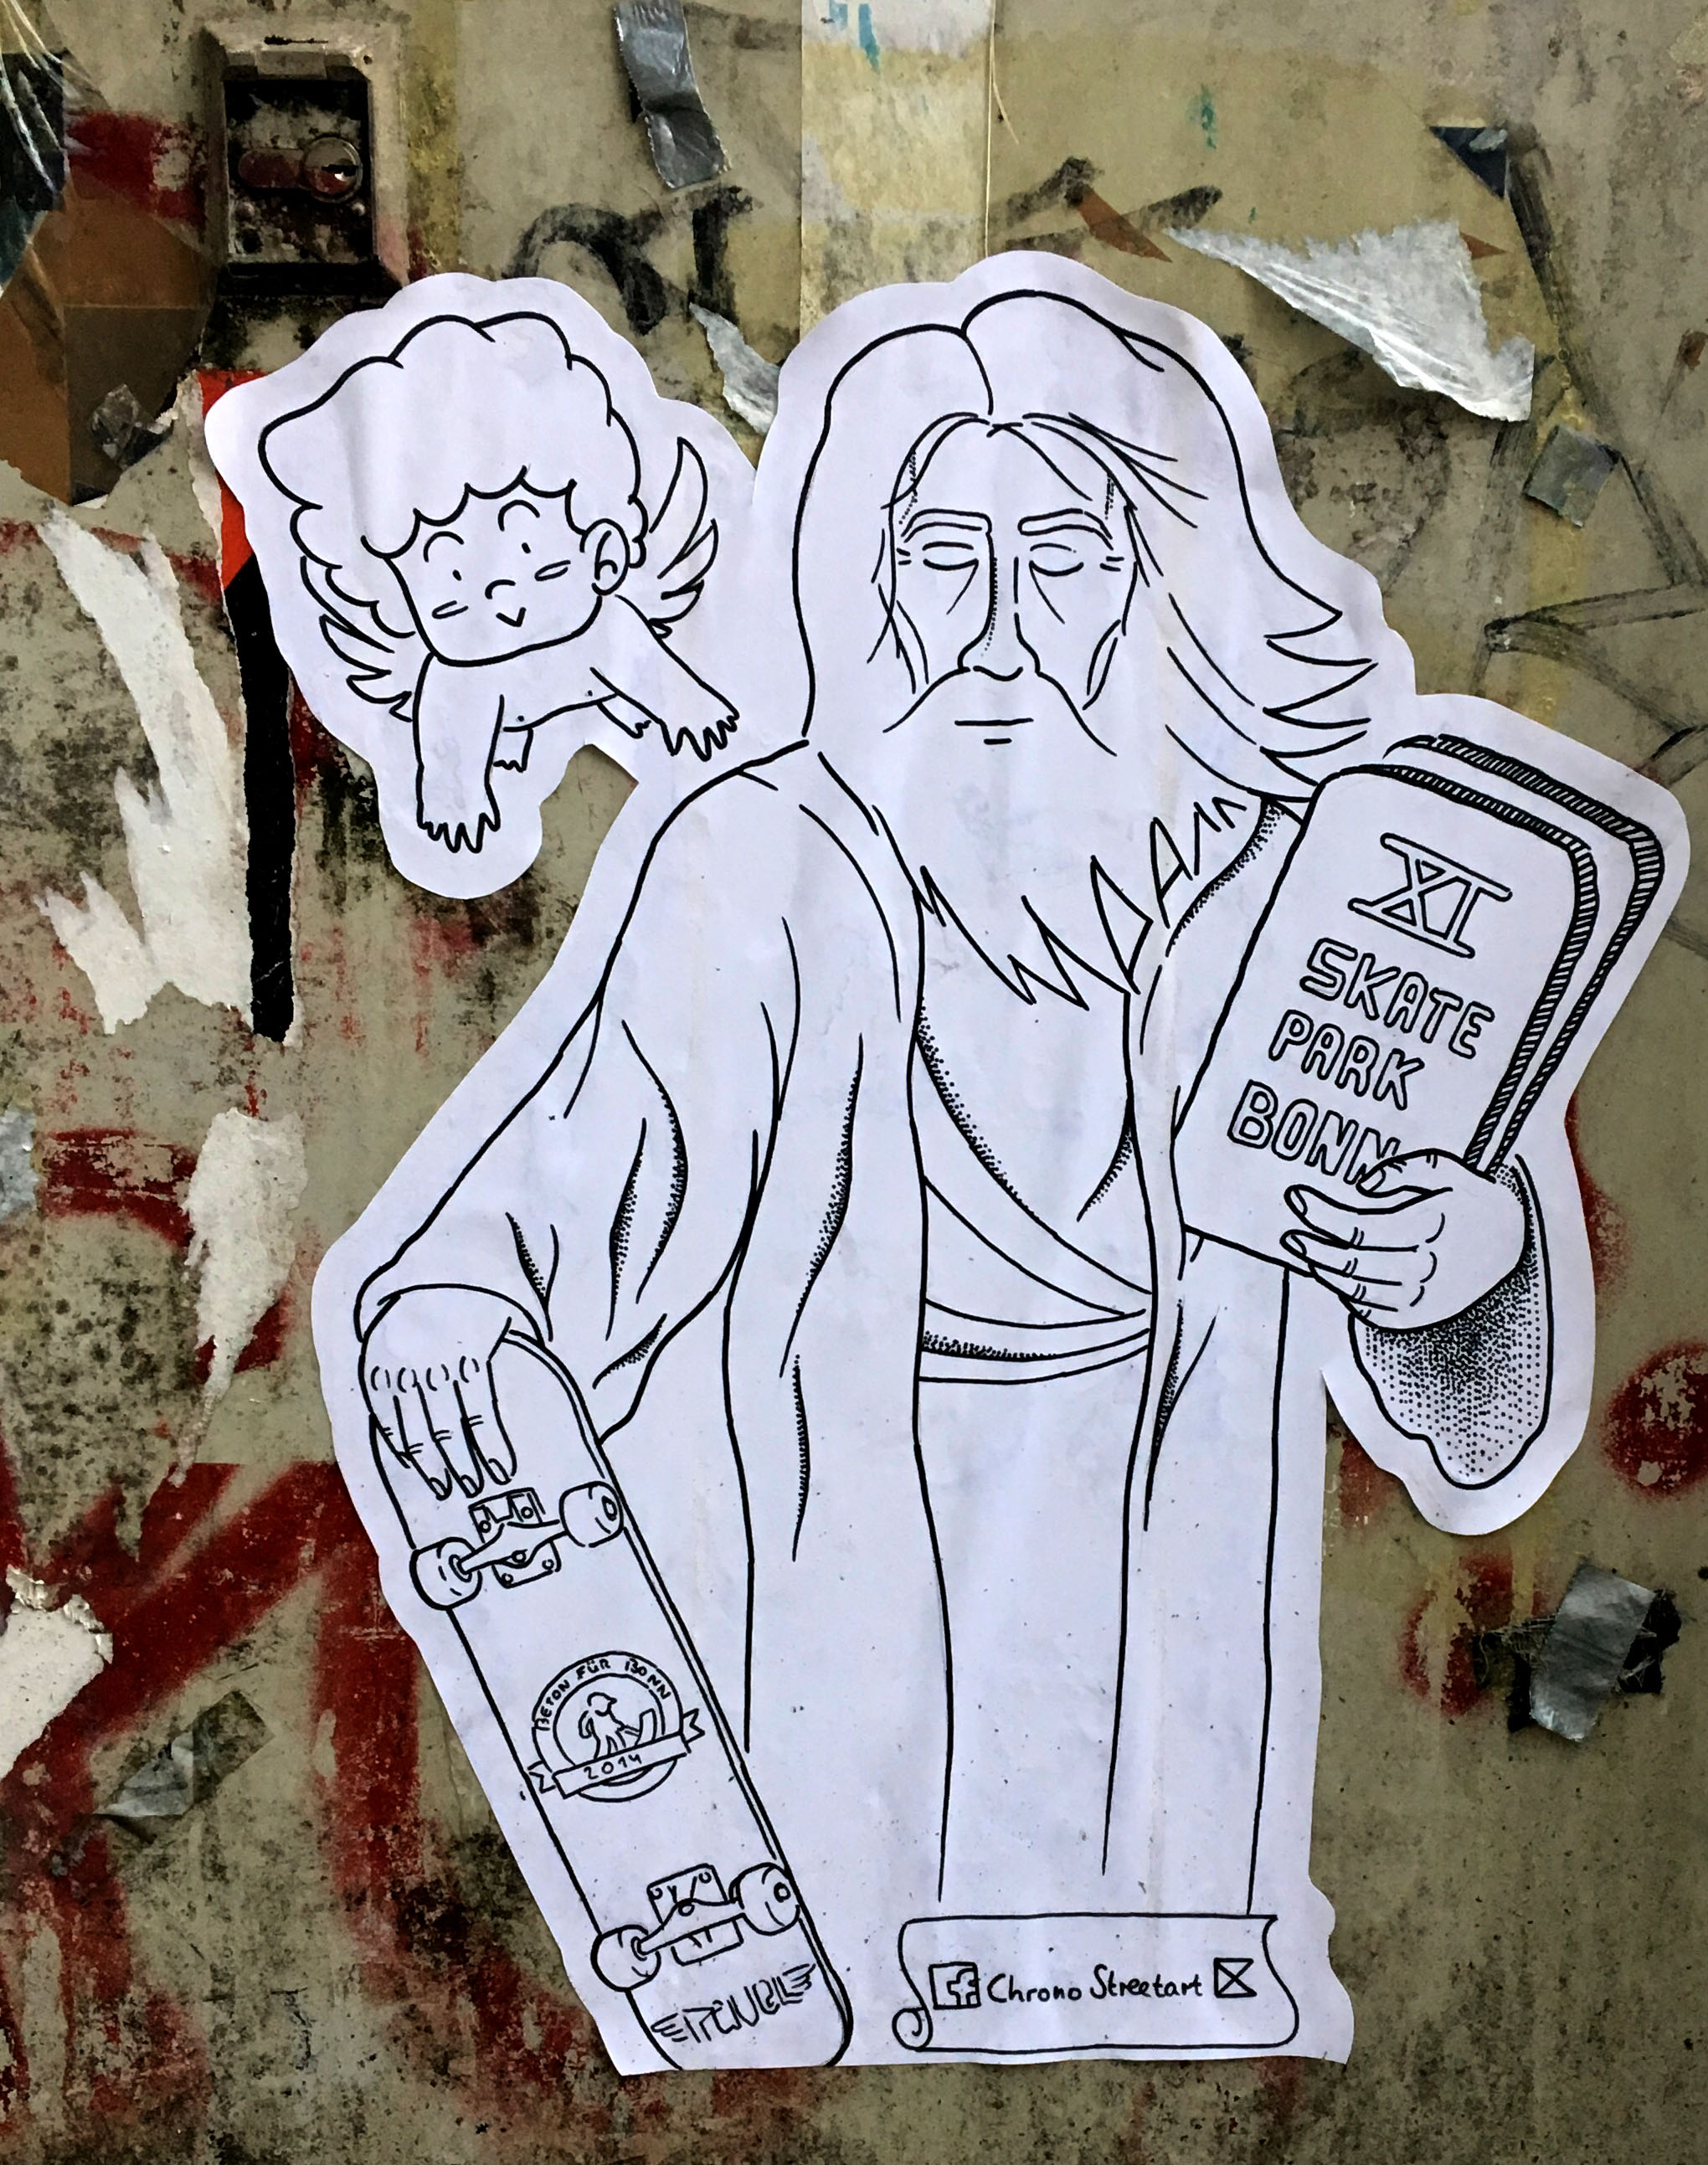 XI
SKATE
PARK
BONN
BETON FÜR BONN
2014
Chrono Streetart